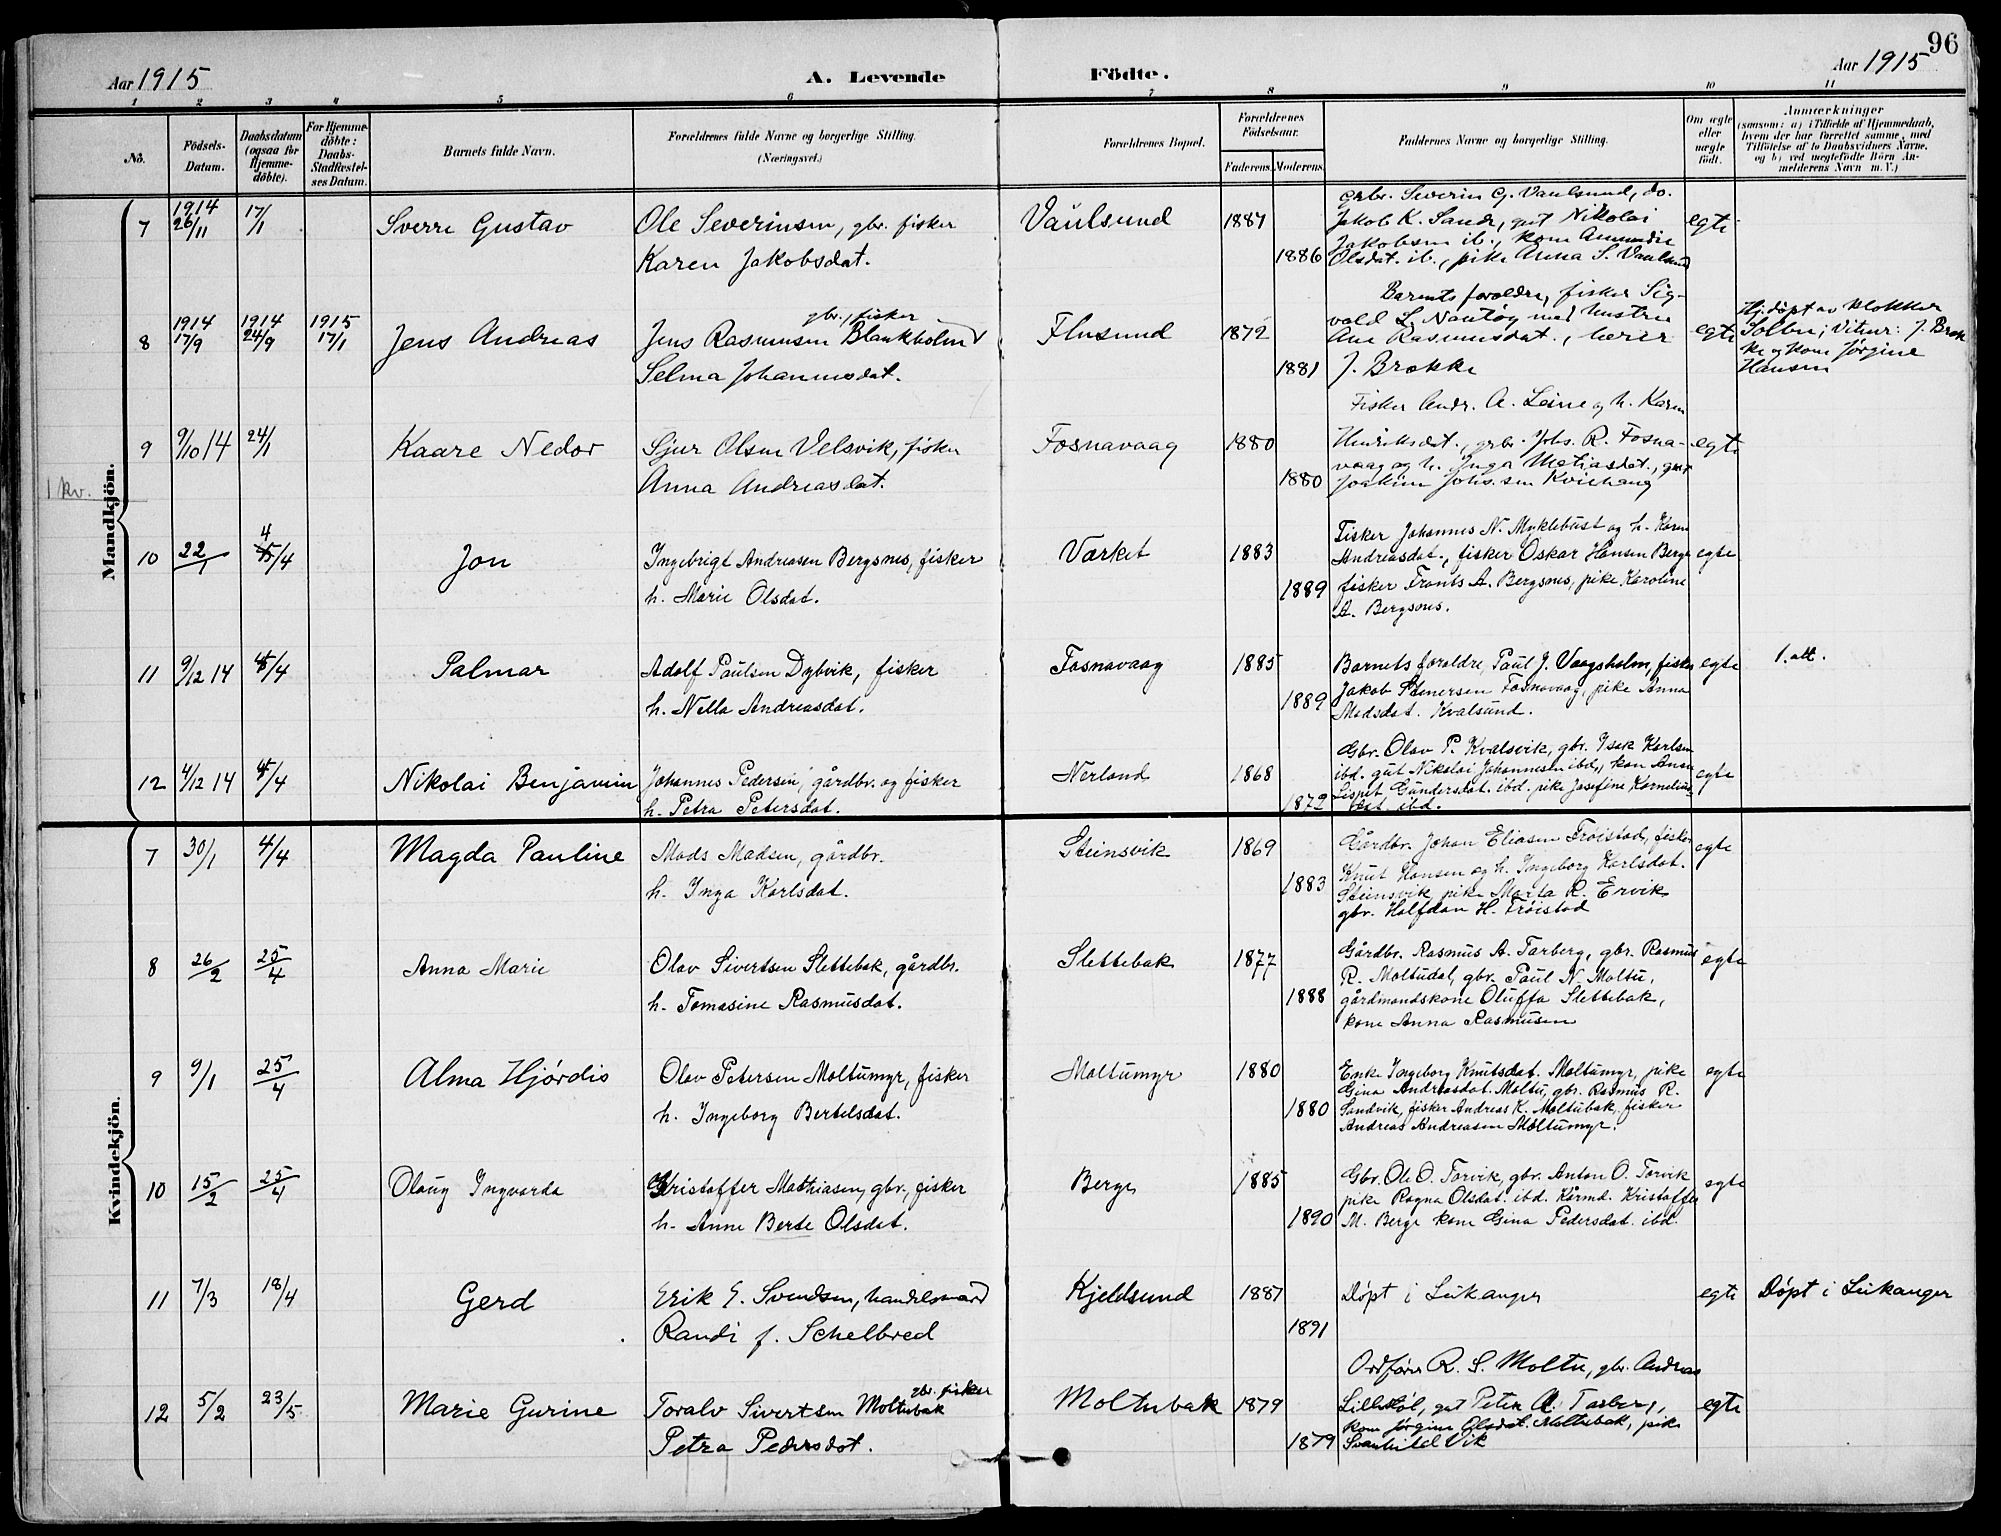 96
Aar 1915
A. Levende
Födte.
Aar 1915
1 2 3 4 5 6 7 8 9 10 11
No.
Födsels-Datum.
Daabsdatum (ogsaa for Hjemmedöbte).
For Hjemmedöbte: Daabs-Stadfæstelses Datum.
Barnets fulde Navn.
Forældrenes fulde Navne og borgerlige Stilling.
(Næringsvei.)
Forældrenes Bopæl.
Forældrenes Födselsaar.
Faderens. Moderens.
Faddernes Navne og borgerlige Stilling.
Om ægte eller uægte födt.
Anmærkninger
(saasom: a) i Tilfælde af Hjemmedaab, hvem der har forrettet samme, med Tilföielse af to Daabsvidners Navne, og b) ved uægtefödte Börn Anmelderens Navn m. V.)
Mandkjön.
1 kv.
7 1914 26/11 17/1 Sverre Gustav Ole Severinsen, gbr. fisker Vaulsund 1887 egte
Karen Jakobsdat. 1886
Grbr. Severin G. Vaulsund, do.
Jakob K. Sandr, gut Nikolai
Jakobsen ib., kone Amundie
Olsdat. ib., pike Anna S. Vaulsund
8 1914 17/9 1914 24/9 1915 17/1 Jens Andreas Jens Rasmussen Blankholm gbr., fisker Flusund 1872 egte
Selma Johannesdat. 1881
Barnets foreldre, fisker Sig-
vald L. Nautøy med hustru
Ane Rasmusdat.,
J. Brække
Hj.døpt av klokker
Solbu; Vitner: J. Bræk
ke og kone Jørgine
Hansen
9 9/10 14 24/1 Kaare Nedor Sjur Olsen Velsvik, fisker Fosnavaag 1880 egte
Anna Andreasdat. 1880
Fisker Andr. A. Leine og h. Karen
Henriksdat., grbr. Johs. R. Fosna-
vaag og h. Inga Metiasdat., gut
Joakim Johs.sen Kvichaug
10 22/1 4/4 Jon Ingebrigt Andreasen Bergsnes, fisker Værket 1883 egte
h. Marie Olsdat. 1889
Fisker Johannes N. Myklebust og h. Karen
Andreasdat., fisker Oskar Hansen Berge
fisker Frants A. Bergsnes, pike Karoline
A. Bergsnes.
11 9/12 14 4/4 Palmar Adolf Paulsen Dybvik, fisker Fosnavaag 1885 egte 1. att.
h. Nella Andreasdat. 1889
Barnets foreldre, Paul J. Vaagsholm, fisker
Jakob Stenersen Fosnavaag, pike Anna
Madsdat. Kvalsund.
12 4/12 14 4/4 Nikolai Benjamin Johannes Pedersen, gårdbr. og fisker Nerland 1868 egte
h. Petra Petersdat. 1872
Gbr. Olav P. Kvalsvik, gbr. Isak Karlsen
ibd. gut Nikolai Johannesen ibd., kone Anne
Lispet Gundersdat. ibd. pike Josefine Kornelius-
dat. ibd.
Kvindekjön.
7 30/1 4/4 Magda Pauline Mads Madsen, gårdbr. Steinsvik 1869 egte
h. Inga Karlsdat. 1883
Gårdbr. Johan Eliasen Frøistad, fisker
Knut Hansen og h. Ingeborg Karlsdat.
Steinsvik pike Marta R. Ervik
gbr. Halfdan H. Frøistad
8 26/2 25/4 Anna Marie Olav Sivertsen Slettebak, gårdbr. Slettebak 1877 egte
h. Tomasine Rasmusdat. 1888
Gårdbr. Rasmus A. Tarberg, gbr. Rasmus
R. Moltudal, gbr. Paul N. Moltu,
gårdmandskone Oluffa Slettebak,
kone Anna Rasmusen
9 9/1 25/4 Alma Hjørdis Olav Petersen Moltumyr, fisker Moltumyr 1880 egte
h. Ingeborg Bertelsdat. 1880
Enke Ingeborg Knutsdat. Moltumyr, pike
Gina Andreasdat. Moltu, gbr. Rasmus R.
Sandvik, fisker Andreas K. Moltubak, fisker
Andreas Andreasen Moltumyr.
10 15/2 25/4 Olaug Ingvarda Kristoffer Mathiasen, gbr., fisker Berge 1885 egte
h. Anne Berte Olsdat. 1890
Gbr. Ole O. Torvik, gbr. Anton O. Torvik
pike Ragna Olsdat. ibd. Kårmd. Kristoffer
M. Berge kone Gina Pedersdat. ibd.
11 7/3 18/4 Gerd Erik E. Svendsen, handelsmand Kjeldsund 1887 Døpt i Leikanger egte Døpt i Leikanger
Randi f. Schelbred 1891
12 5/2 23/5 Marie Gurine Toralv Sivertsen Moltubak gbr. fisker Moltubak 1879 egte
Petra Pedersdat. 1879
Ordfører R. S. Moltu, gbr. Andreas
Lillebøl, gut Peter A. Tarberg,
kone Jørgine Olsdat. Moltubak, pike
Svanhild Vik